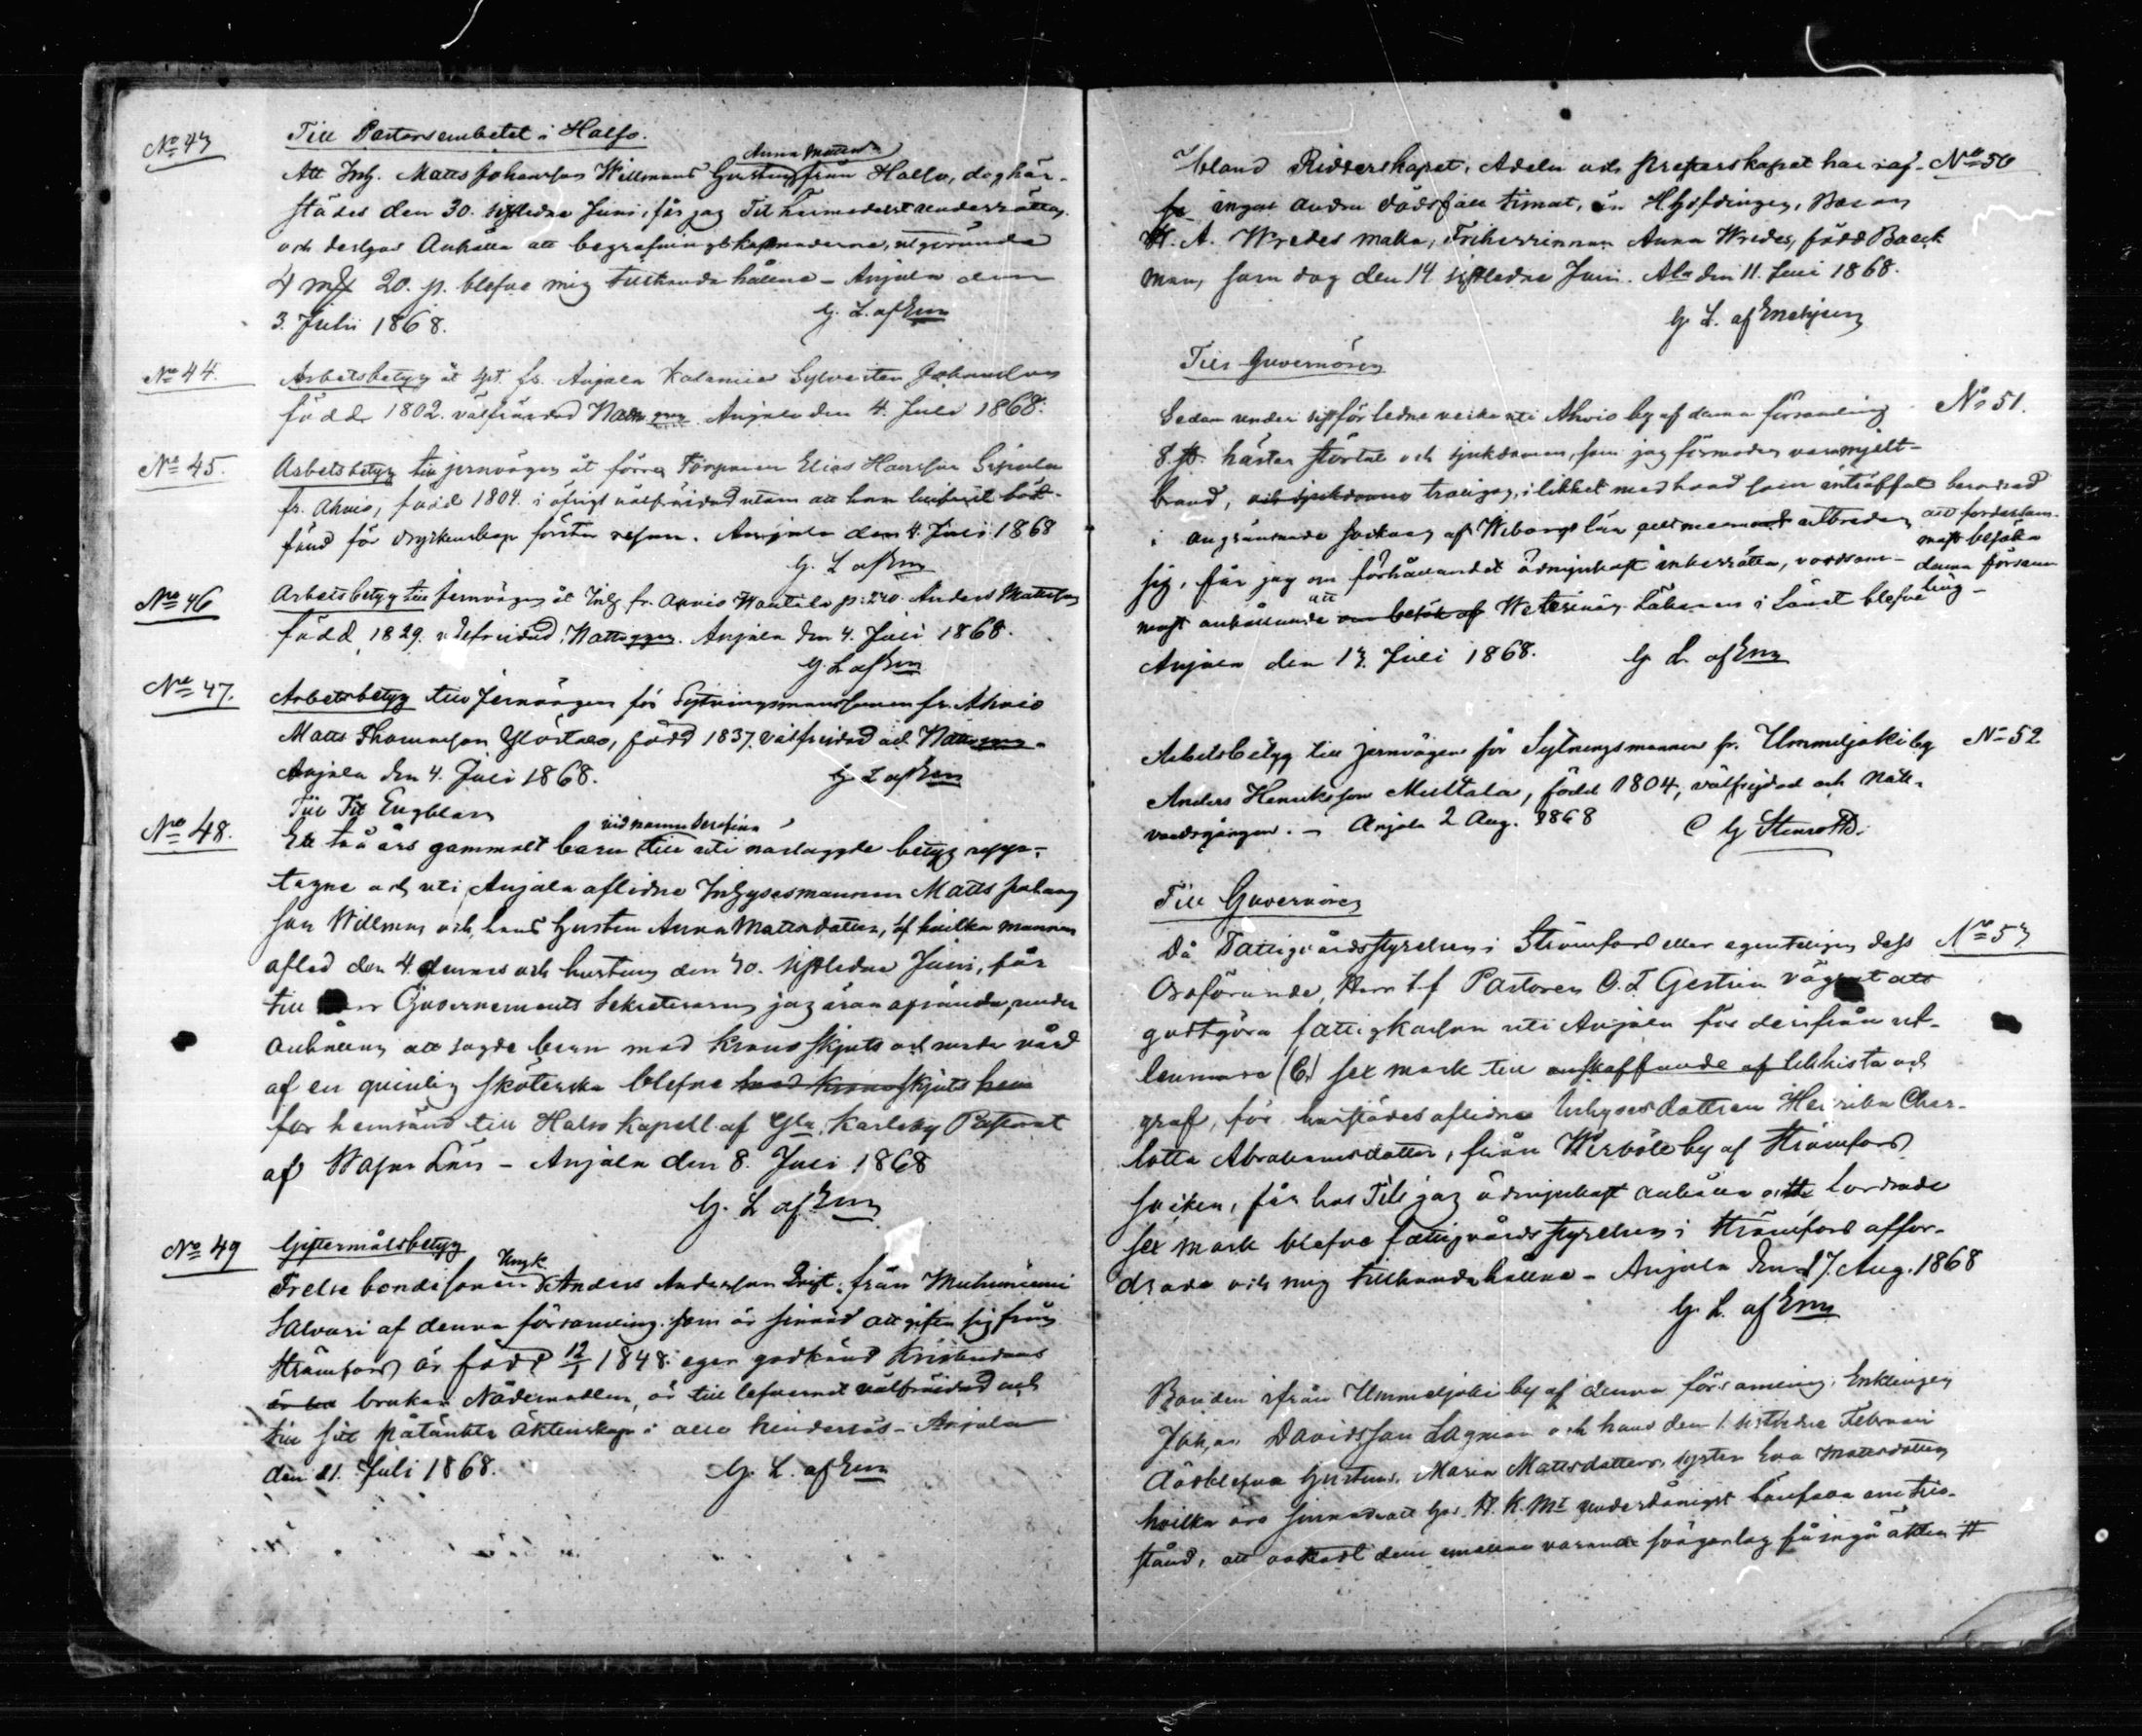 No 43
Till Pastorsembetet i Halso.
Att Inh. Matts Johansson Willmans Hustru Anna Mattsd. från Halso, dog här-
städes den 30. sistledne Juni, får jag Tit hörmedelst underrätta
och derhos Anhålla att begrafningskostnaderna, utgörande
4 mk 20. p. blefve mig tillhanda hållna - Anjala den
3. Juli 1868. G. L. af Enn
No 44.
Arbetsbetyg åt fr. Anjala Sylvester Johansson
född 1802. välfräjdad Anjala den 4. Juli 1868.
No 45.
Arbetsbetyg till jernvägen åt förra Torparen Elias Hansson Sipola
fr. Ahvio, född 1804. i öfrigt välfräjdad utom att han blifvit böt-
fäld för dryckenskap första resan. Anjala den 4. Juli 1868
G. L af Enn
No 46
Arbetsbetyg till Jernvägen åt Inh. fr. Ahvio p: 240. Anders Mattsson
född 1829. välfräjdad, Nattv. Anjala den 4. Juli 1868.
G. L af Enn
No 47.
Arbetsbetyg till Jernvägen för Sytningsmannen fr. Ahvio
Matts Thomasson född 1837. välfräjdad och
Anjala den 4. Juli 1868. G. L af Enn
No 48.
Till Tit Engblom
Ett två års gammalt barn vid namn Serafina till uti närlaggde betyg upp-
tagne och uti Anjala aflidne Inhysesmannen Matts Johans
son Willman och hans hustru Anna Mattsdotter, af hvilka mannen
afled den 4. dennes och hustrun den 30. sistledne Juni, får
till Guvernements Sekreteraren jag äran afsända, under
anhållan att sagde barn med Krono skjuts och under vård
af en qvinlig sköterska blefve med kronoskjuts hem
för hemsänd till Halso Kapell af Gla Karleby Pastorat
af Wasa Län - Anjala den 8. Juli 1868
G. L af Enn
No 49
Giftermålsbetyg
Frelse bondesonen Ungk Anders Andersson från Muhniemi
Salvari af denna församling. som är sinnad att gifta sig från
Strömfors är född 12/1 1848. eger godkänd kristendoms
är brukar Nådemedlen, är till lefvernet välfräjdad och
till sitt påtänkta äktenskap i allo hinderlös - Anjala
den 21. Juli 1868. G. L. af Enn
Ibland Ridderskapet, Adeln och Presterskapet har i af- No 50
se inget andra dödsfall timat, än H. Höfdingen, Baron
A. Wredes maka, Friherrinnan Anna Wredes, född Baeck
man, som dog den 14 sistledne Juni. Ala den 11. Juli 1868.
G. L. af Enehjelm
Till Guvernören
Sedan under sistförledne vecka uti Ahvio by af denna församling No 51.
8. st. hästar störtat och sjukdomen, som jag förmodar vara mjelt-
brand, och sjukdomen troligen, i likhet med hvad som inträffat
i angränsande socknar af Wiborgs län utbreder
sig, får jag om förhållandet ödmjukast inberätta, vördsam-
mast anhållande att om besök af Weterinär Läkaren i Länet blefve beordrad att fordersam-
mast besöka
denna försam
ling -
Anjala den 13. Juli 1868. G. L. af Enn
Arbetsbetyg till jernvägen för Sytningsmannen fr. Ummeljoki by No 52
Anders Henriksson Muttala, född 1804, välfrejdad och natt-
vardsgången. - Anjala 2 Aug. 1868 C G Stenroth.
Till Guvernören
Då Fattigvårdsstyrelsen i Strömfors eller egenteligen dess No 53
Ordförande, Herr t.f Pastoren O. I Gestrin vägrat att
godtgöra fattigkassan uti Anjala för derifrån ut-
lemnade (6.) sex mark till anskaffande af likkista och
graf, för härstädes aflidna Inhysesdottren Henrika Char-
lotta Abrahamsdotter, från Wirböle by af Strömfors
socken, får hos Tit jag ödmjukast anhålla att berörde
sex mark blefve fattigvårdsstyrelsen i Strömfors affor-
drade och mig tillhanda hållna - Anjala den 17. Aug. 1868
G. L. af Enn
Bonden ifrån Ummeljoki by af denna församling, Enklingen
Johan Davidsson Lagman och hans den 1. sistledne Februari
dödblefna hustrus, Maria Mattsdotters syster Eva Mattsdotter
hvilka äro sinnade att hos H. K. Mt underdånigst bönfara om till-
stånd, att oaktadt dem emellan varande svågerlag få ingå äkten #